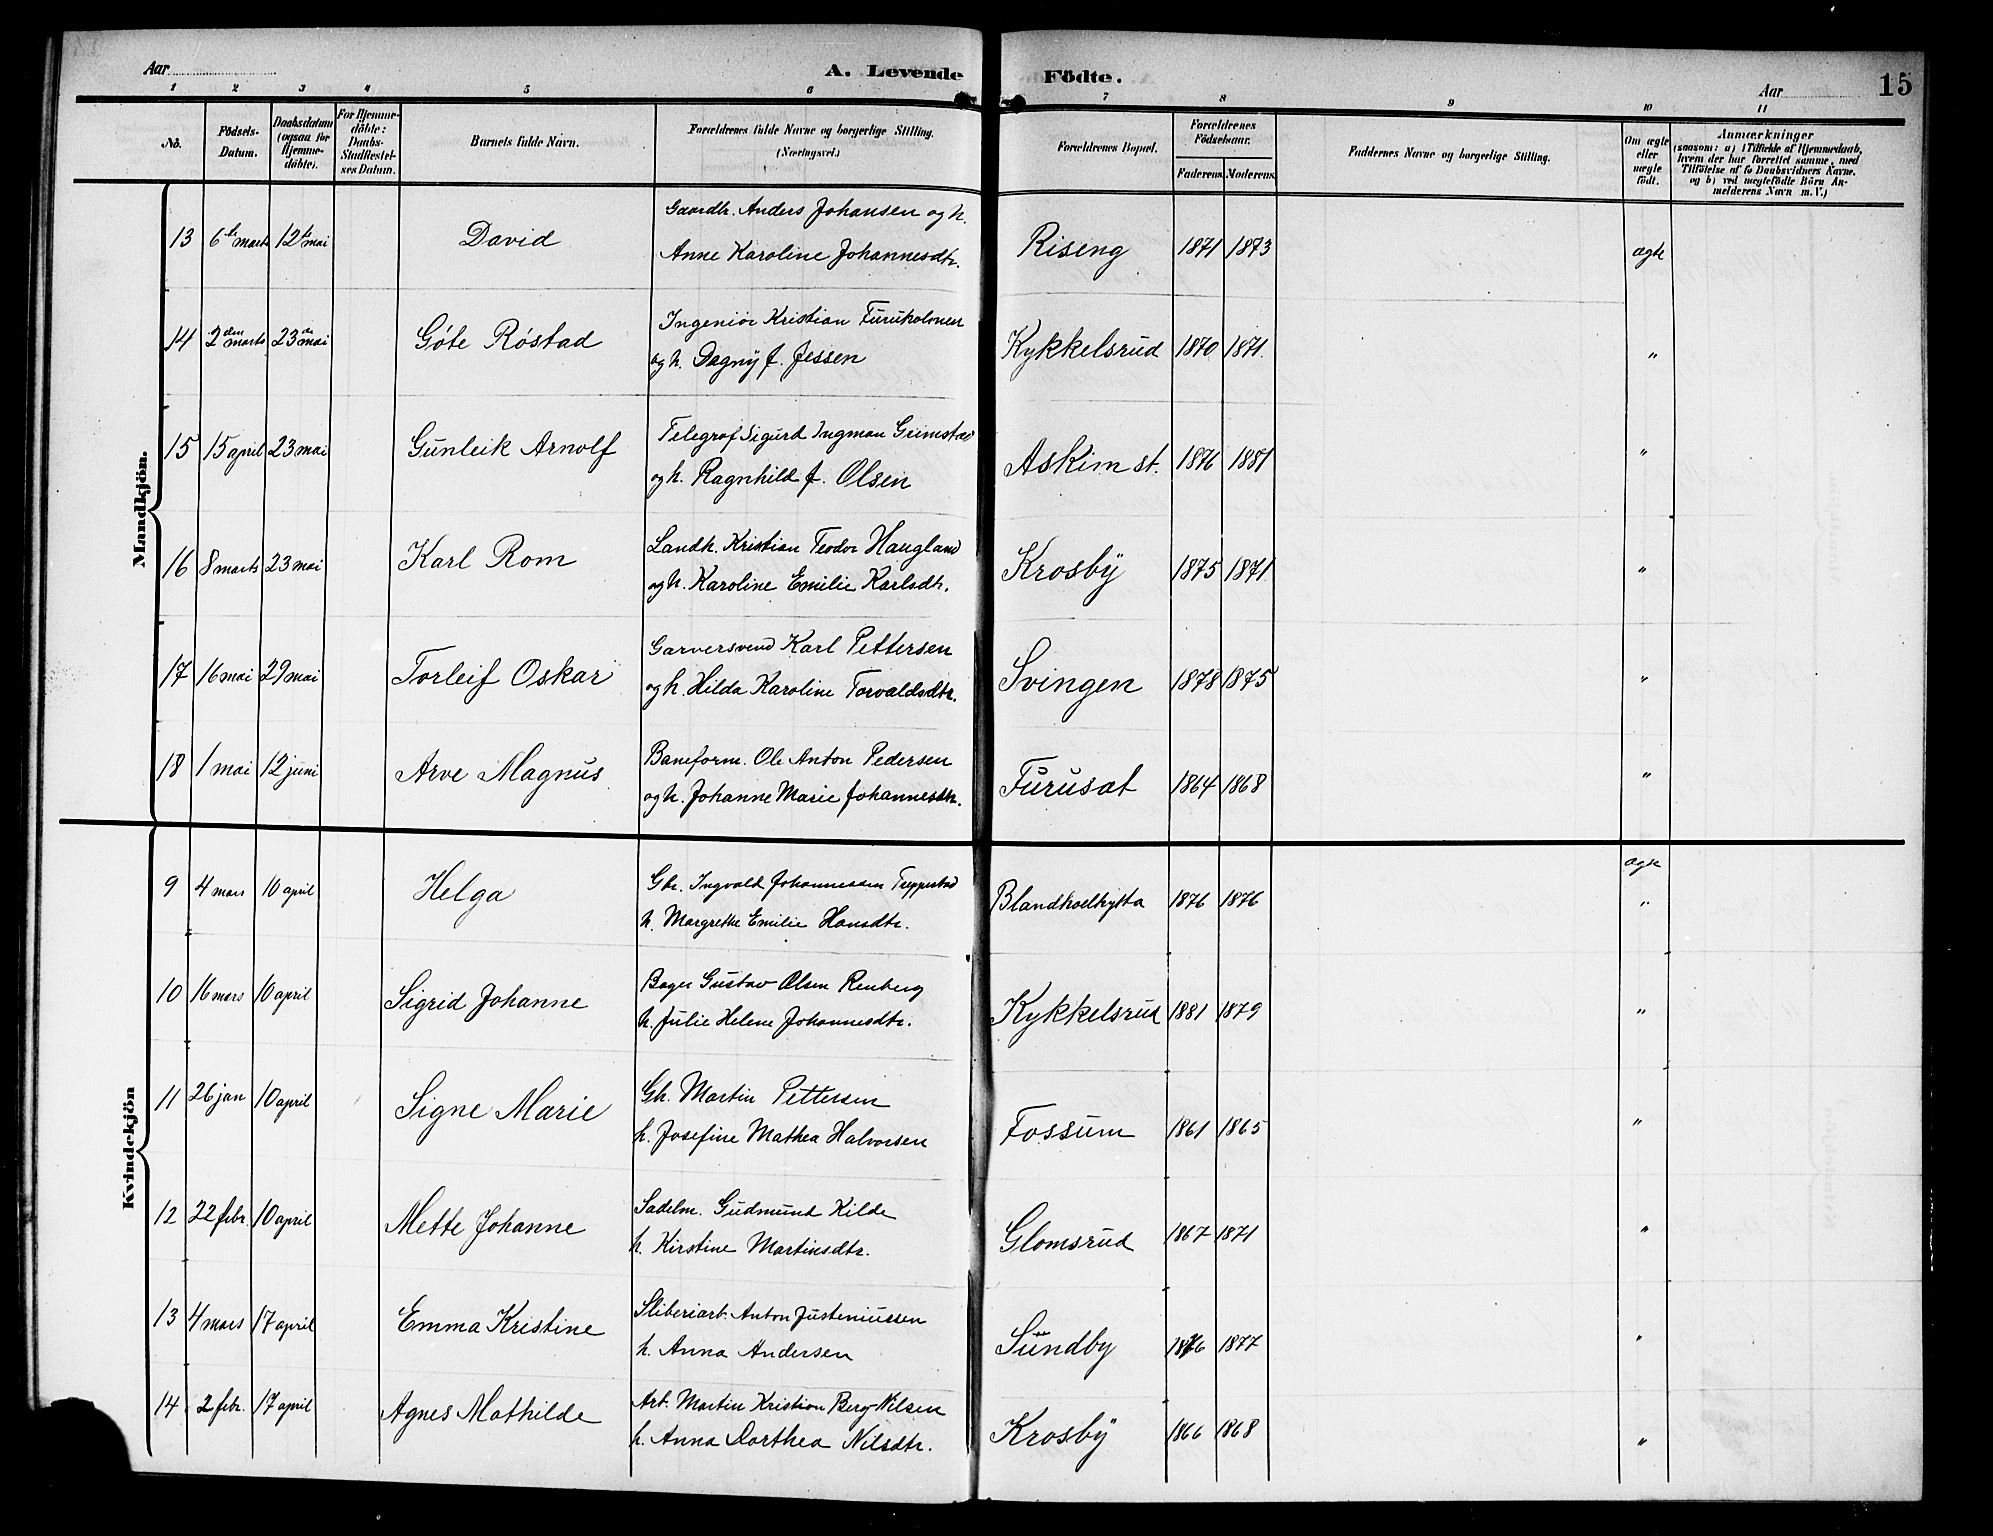 Aar
A. Levende Födte.
Aar
15
1 2 3 4 5 6 7 8 9 10 11
No.
Födsels-Datum.
Daabsdatum (ogsaa for Hjemme-döbte).
For Hjemme-döbte: Daabs-Stadfæstel-ses Datum.
Barnets fulde Navn.
Forældrenes fulde Navne og borgerlige Stilling. (Næringsvei.)
Forældrenes Bopæl.
Forældrenes Födselsaar.
Faderens. Moderens.
Faddernes Navne og borgerlige Stilling.
Om ægte eller uægte födt.
Anmærkninger
(saasom: a) i Tilfælde af Hjemmedaab, hvem der har forrettet samme, med Tilföielse af to Daabsvidners Navne. og b) ved uægtefödte Börn An-melderens Navn m. V.)
Mandkjön.
13 6te marts 12te mai David Gaardbr. Anders Johansen og h. Riseng 1871 1873 ægte
Anne Karoline Johannesdtr.
14 2den marts 23de mai Göte Röstad Ingeniör Kristian Furuholmen Kykkelsrud 1870 1871. "
og h. Dagny f. Jessen
15 15 april 23 mai Gunleik Arnolf Telegraf Sigurd Ingman Grimstad Askim st. 1876 1881 "
og h. Ragnhild f. Olsen
16 8 marts 23 mai Karl Rom Landh. Kristian Teodor Haugland Krosby 1875 1871 "
og h. Karoline Emilie Karlsdtr.
17 16 mai 29 mai Torleif Oskar Garversvend Karl Pettersen Svingen 1878 1875 "
og h. Hilda Karoline Torvaldsdtr.
18 1 mai 12 juni Arve Magnus Baneform. Ole Anton Pedersen Furusat 1864 1868 "
og h. Johanne Marie Johannesdtr.
Kvindekjön
ægte
9 4 mars 10 april Helga Gbr. Ingvald Johannessen 1876 1876 "
h. Margrethe Emilie Hansdtr.
10 16 mars 10 april Sigrid Johanne Bager Gustav Olsen Renberg Kykkelsrud 1881 1879 "
h. Julie Helene Johannesdtr.
11 26 jan 10 april Signe Marie Gh. Martin Pettersen Fossum 1861 1865 "
h. Josefine Mathea Halvorsen
12 22 febr. 10 april Mette Johanne Sadelm. Gudmund Kilde Glomsrud 1867 1871 "
h. Kirstine Martinsdtr.
13 4 mars 17 april Emma Kristine Sliberiarb. Anton Justeniussen Sundby 1876 1877 "
h. Anna Andersen
14 2 febr. 17 april Agnes Mathilde Arb. Martin Kristian Berg Nilsen Krosby 1866 1868 "
h. Anna Dorthea Nilsdtr.